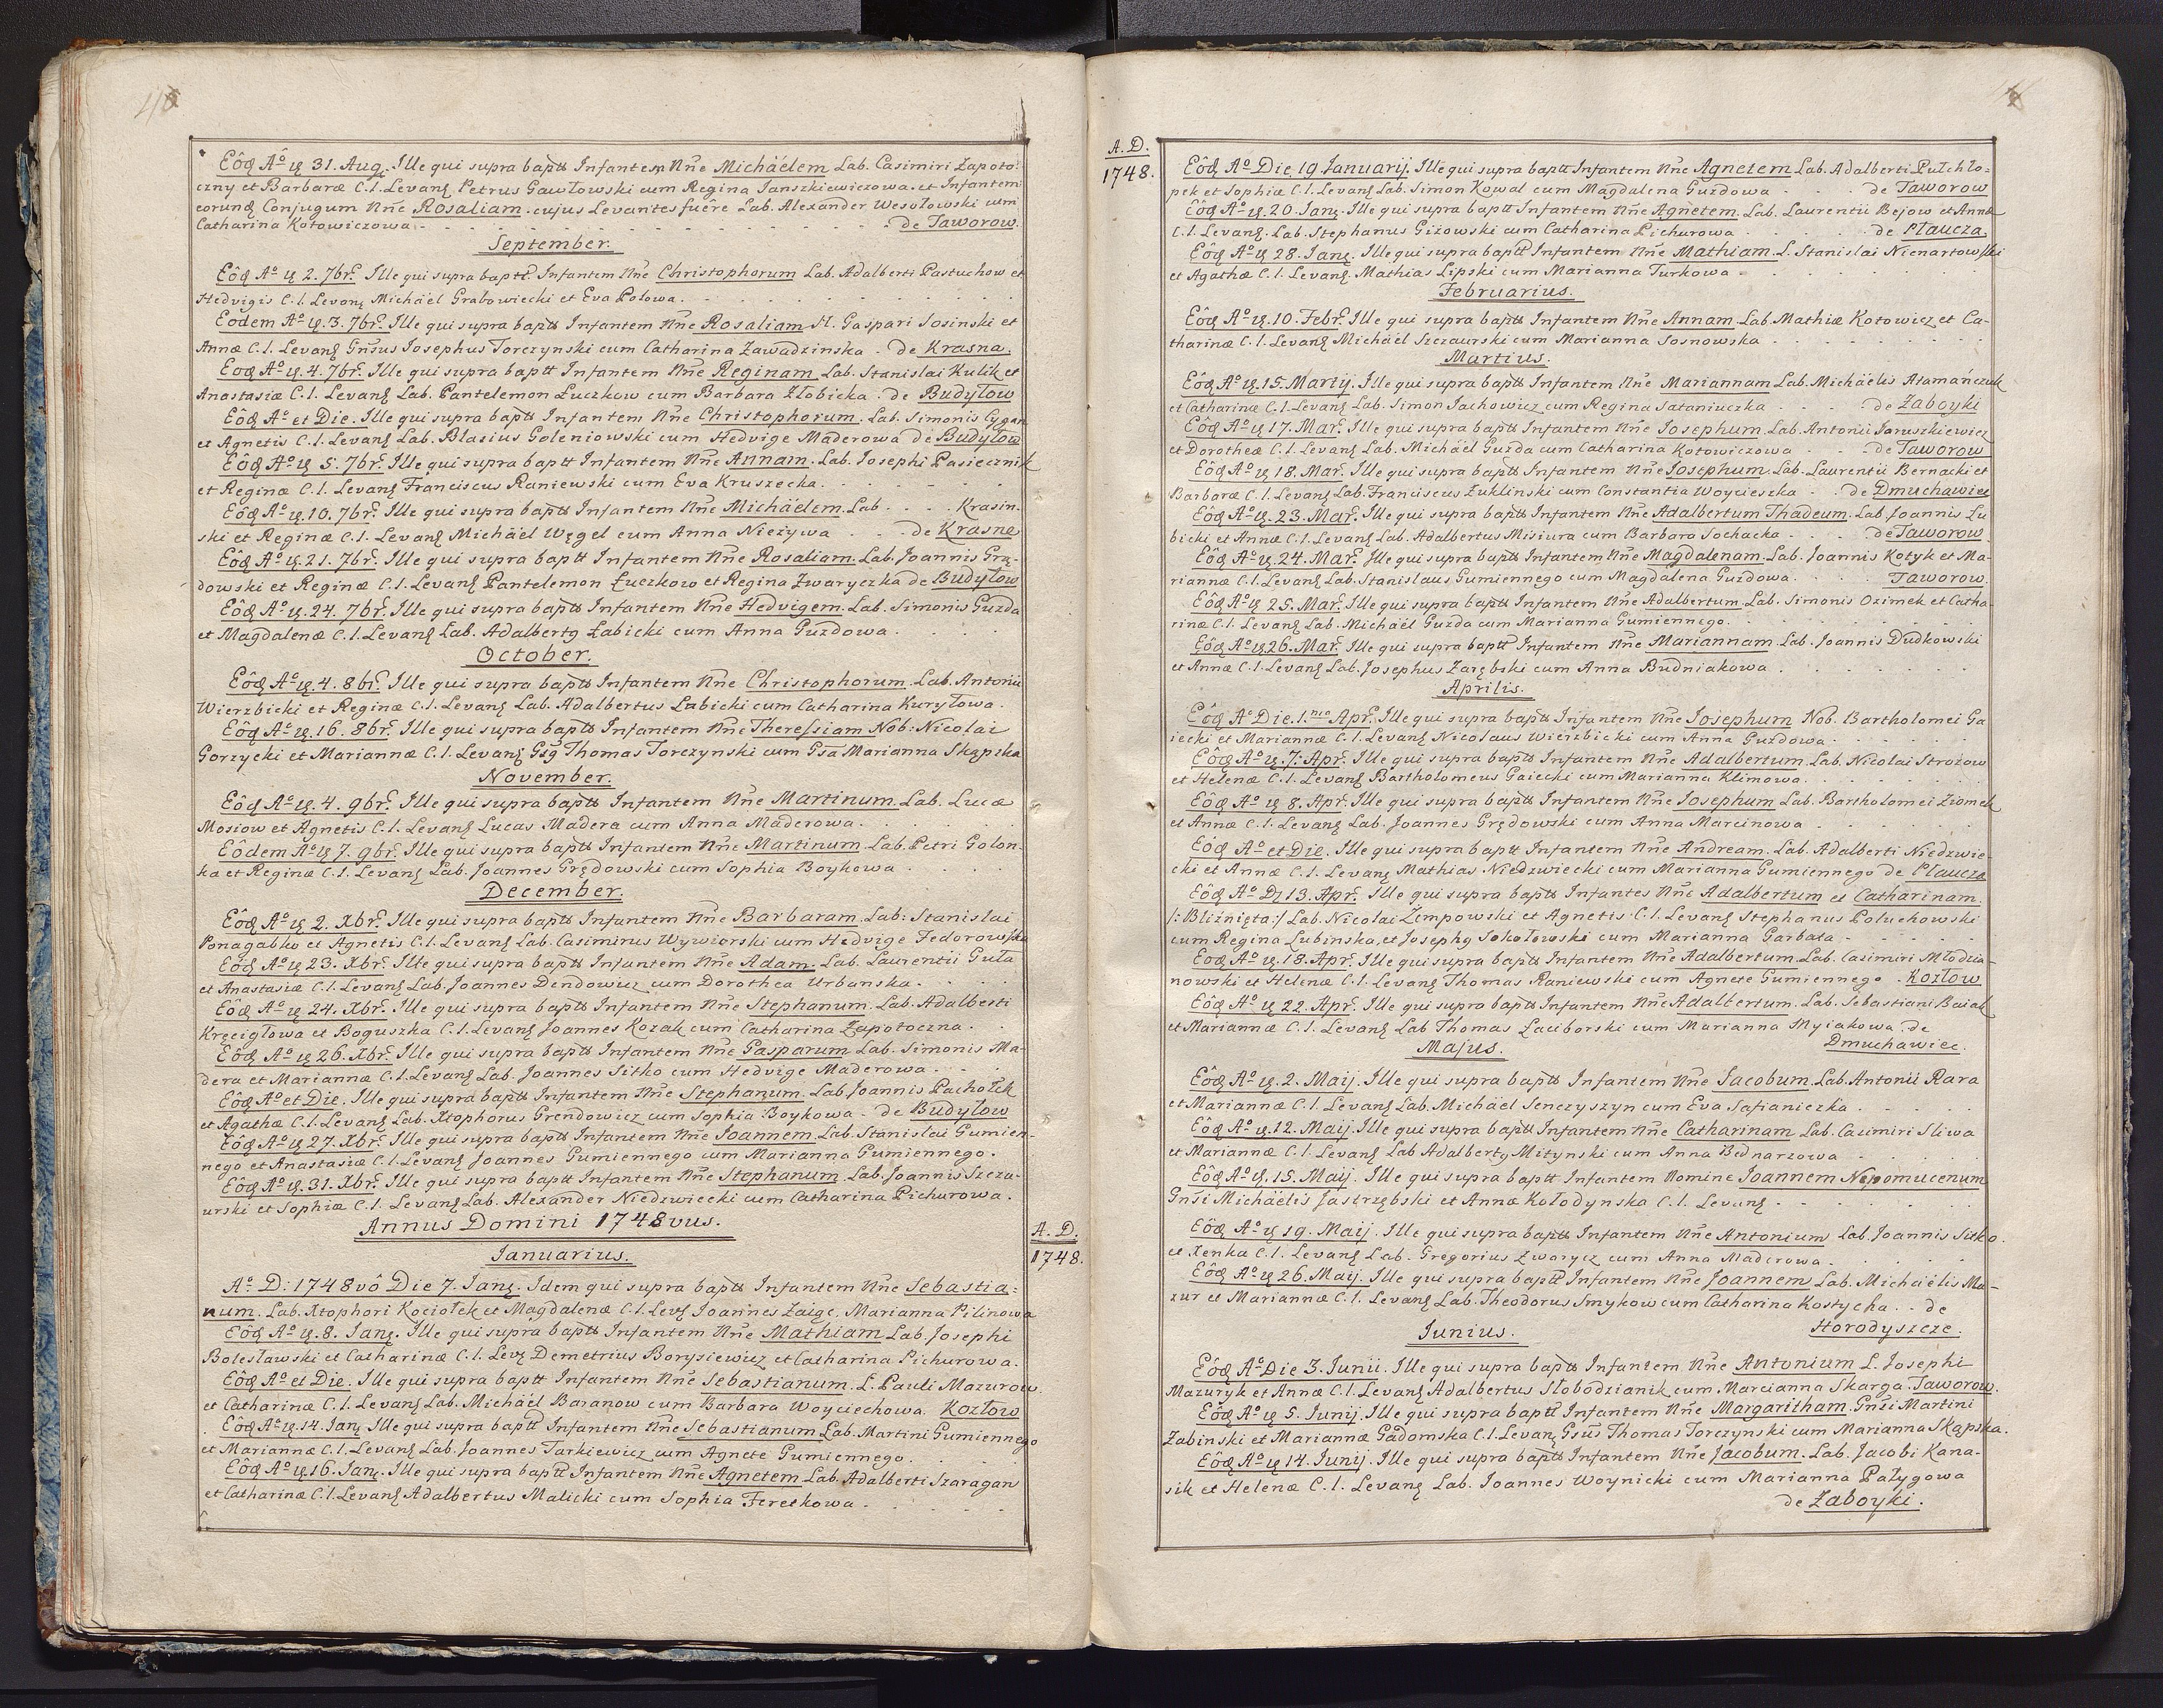 Eôdꝫ Aô ɥ 31. Aug. Ille qui supra baptt Infantem Nne Michäelem Lab. Casimiri Zapoto-
czny et Barbaræ C.l. Levanꝫ Petrus Gawłowski cum Regina Janszkiewiczowa. et Infantem
eorundꝫ Conjugum Nne Rosaliam. cujus Levantes fuêre Lab. Alexander Wesołowski cum
Catharina Kotowiczowa - - - de Taworow.
September.
Eôdꝫ Aô ɥ 2. 7br. Ille qui supra baptt Infantem Nne Christophorum Lab. Adalberti Pastuchow et
Hedvigis C.l. Levanꝫ Michäel Grabowiecki et Eva Polowa.
Eôdem Aô ɥ. 3. 7br. Ille qui supra baptt Infantem Nne Rosaliam H. Gaspari Josinski et
Annæ C.l. Levanꝫ Gnsus Josephus Torczynski cum Catharina Zawadzinska - de Krasna.
Eôdꝫ Aô ɥ. 4. 7br. Ille qui supra baptt Infantem Nne Reginam Lab. Stanislai Kulik et
Anastasiæ C.l. Levanꝫ Lab. Pantelemon Łuczkow cum Barbara Złobicka. de Budyłow
Eôdꝫ Aô et Die. Ille qui supra baptt Infantem Nne Christophorum. Lab. Simonis Cygan
et Agnetis C.l. Levanꝫ Lab. Blasius Goleniowski cum Hedvige Maderowa de Budyłow
Eôdꝫ Aô ɥ 5. 7br. Ille qui supra baptt Infantem Nne Annam. Lab. Josephi Pasiecznik
et Reginæ C.l. Levanꝫ Franciscus Raniewski cum Eva Kruszecka.
Eôdꝫ Aô ɥ. 10. 7br. Ille qui supra baptt Infantem Nne Michäelem. Lab - - - - Krasin-
ski et Reginæ C.l. Levanꝫ Michäel Węgel cum Anna Nieżywa - - - de Krasne
Eôdꝫ Aô ɥ. 21. 7br. Ille qui supra baptt Infantem Nne Rosaliam. Lab. Joannis Grę-
dowski et Reginæ C.l. Levanꝫ Pantelemon Łuczkow et Regina Zwaryczka de Budyłow
Eôdꝫ Aô ɥ. 24. 7br. Ille qui supra baptt Infantem Nne Hedvigem. Lab. Simonis Guzda
et Magdalenæ C.l. Levanꝫ Lab. Adalbertꝰ Łabicki cum Anna Guzdowa.
October.
Eôdꝫ Aô ɥ. 4. 8br. Ille qui supra baptt Infantem Nne Christophorum. Lab. Antonii
Wierzbicki et Reginæ C.l. Levanꝫ Lab. Adalbertus Łabicki cum Catharina Kuryłowa.
Eôdꝫ Aô ɥ. 16. 8br. Ille qui supra baptt Infantem Nne Theressiam Nob. Nicolai
Gorzycki et Mariannæ C.l. Levanꝫ Gsꝰ Thomas Torczynski cum Gsa Marianna Skąpska
November.
Eôdꝫ Aô ɥ. 4. 9br. Ille qui supra baptt Infantem Nne Martinum Lab. Lucæ
Mosiow et Agnetis C.l. Levanꝫ Lucas Madera cum Anna Maderowa.
Eôdem Aô ɥ 7. 9br. Ille qui supra baptt Infantem Nne Martinum. Lab. Petri Golon-
ka et Reginæ C.l. Levanꝫ Lab. Joannes Grędowski cum Sophia Boykowa.
December.
Eôdꝫ Aô ɥ 2. Xbr. Ille qui supra baptt Infantem Nne Barbaram. Lab: Stanislai
Ponagabko et Agnetis C.l. Levanꝫ Lab. Casimirus Wywiorski cum Hedvige Fedorowska
Eôdꝫ Aô ɥ 23. Xbr. Ille qui supra baptt Infantem Nne Adam. Lab. Laurentii Guła
et Anastasiæ C.l. Levanꝫ Lab. Joannes Dendowicz cum Dorothea Urbanska.
Eôdꝫ Aô ɥ 24. Xbr. Ille qui supra baptt Infantem Nne Stephanum. Lab. Adalberti
Kręcigłowa et Boguszka C.l. Levanꝫ Joannes Kozak cum Catharina Zapotoczna.
Eôdꝫ Aô ɥ 26. Xbr. Ille qui supra baptt Infantem Nne Gasparum Lab. Simonis Ma-
dera et Mariannæ C.l. Levanꝫ Lab. Joannes Sitko cum Hedvige Maderowa.
Eôdꝫ Aô et Die. Ille qui supra baptt Infantem Nne Stephanum. Lab Joannis Pachołek
et Agathæ C.l. Levanꝫ Lab. Xtophorus Grendowicz cum Sophia Boykowa - de Budyłow
Eôdꝫ Aô ɥ 27. Xbr. Ille qui supra baptt Infantem Nne Joannem. Lab. Stanislai Gumien-
nego et Anastasiæ C.l. Levanꝫ Joannes Gumiennego cum Marianna Gumiennego.
Eôdꝫ Aô ɥ. 31. Xbr. Ille qui supra baptt Infantem Nne Stephanum Lab. Joannis Szcza-
urski et Sophiæ C.l. Levanꝫ Lab. Alexander Niedzwiecki cum Catharina Pichurowa.
Annus Domini 1748vus.
A. D.
1748.
Januarius.
Aô D: 1748vô Die 7. Janꝫ. Idem qui supra baptt Infantem Nne Sebastia-
num. Lab. Xtophori Kociołek et Magdalenæ C.l. Levꝫ Joannes Zaigc, Marianna Pilinowa
Eôdꝫ Aô ɥ. 8. Janꝫ. Ille qui supra baptt Infantem Nne Mathiam Lab. Josephi
Bolesławski et Catharinæ C.l. Levꝫ Demetrius Borysiewicz et Catharina Pichurowa.
Eôdꝫ Aô et Die. Ille qui supra baptt Infantem Nne Sebastianum. L. Pauli Mazurow
et Catharinæ C.l. Levanꝫ Lab. Michäel Baranow cum Barbara Woyciechowa. Kozłow
Eôdꝫ Aô ɥ. 14. Janꝫ Ille qui supra baptt Infantem Nne Sebastianum Lab. Martini Gumiennego
et Mariannæ C.l. Levanꝫ Lab. Joannes Tarkiewicz cum Agnete Gumiennego.
Eôdꝫ Aô ɥ. 16. Janꝫ. Ille qui supra baptt Infantem Nne Agnetem Lab. Adalberti Szaragan
et Catharinæ C.l. Levanꝫ Adalbertus Malicki cum Sophia Feretkowa.
A. D.
1748.
Eôdꝫ Aô Die 19 Januarij. Ille qui supra baptt Infantem Nne Agnetem Lab. Adalberti Pułchło-
pek et Sophiæ C.l. Levanꝫ Lab. Simon Kowal cum Magdalena Guzdowa - - - de Taworow
Eôdꝫ Aô ɥ. 20. Janꝫ. Ille qui supra baptt Infantem Nne Agnetem. Lab. Laurentii Bejow et Annæ
C.l. Levanꝫ. Lab. Stephanus Gizowski cum Catharina Pichurowa - - - de Płaucza.
Eôdꝫ Aô ɥ 28. Janꝫ. Ille qui supra baptt Infantem Nne Mathiam. L. Stanislai Nienartowski
et Agathæ C.l. Levanꝫ. Mathias Lipski cum Marianna Turkowa
Februarius.
Eôdꝫ Aô ɥ. 10. Febr. Ille qui supra baptt Infantem Nne Annam. Lab. Mathiæ Kotowicz et Ca-
tharinæ C.l. Levanꝫ Michäel Szczaurski cum Marianna Sosnowska
Martius.
Eôdꝫ Aô ɥ. 15. Martij. Ille qui supra baptt Infantem Nne Mariannam Lab. Michäelis Atamańczuk
et Catharinæ C.l. Levanꝫ Lab. Simon Jachowicz cum Regina Sataniuczka - - - de Zaboyki
Eôdꝫ Aô ɥ 17. Mar. Ille qui supra baptt Infantem Nne Josephum. Lab. Antonii Jaruszkiewicz
et Dorotheæ C.l. Levanꝫ Lab. Michäel Guzda cum Catharina Kotowiczowa - - de Taworow
Eôdꝫ Aô ɥ. 18. Mar. Ille qui supra baptt Infantem Nne Josephum. Lab. Laurentii Bernacki et
Barbaræ C.l. Levanꝫ Lab. Franciscus Zuklinski cum Constantia Woycieszka - de Dmuchawiec
Eôdꝫ Aô ɥ. 23. Mar. Ille qui supra baptt Infantem Nne Adalbertum Thadeum. Lab. Joannis Lu
bicki et Annæ C.l. Levanꝫ Lab. Adalbertus Misiura cum Barbara Sochacka - - - de Taworow
Eôdꝫ Aô ɥ. 24. Mar. Ille qui supra baptt Infantem Nne Magdalenam. Lab. Joannis Kotyk et Ma-
riannæ C.l. Levanꝫ Lab. Stanislaus Gumiennego cum Magdalena Guzdowa. - - - Taworow.
Eôdꝫ Aô ɥ 25. Mar. Ille qui supra baptt Infantem Nne Adalbertum. Lab. Simonis Ozimek et Catha-
rinæ C.l. Levanꝫ Lab. Michäel Guzda cum Marianna Gumiennego.
Eôdꝫ Aô ɥ 26. Mar. Ille qui supra baptt Infantem Nne Mariannam. Lab. Joannis Dudkowski
et Annæ C.l. Levanꝫ Lab. Josephus Zarębski cum Anna Budniakowa.
Aprilis.
Eôdꝫ Aô Die. 1.mo Apr. Ille qui supra baptt Infantem Nne Josephum Nob. Bartholomei Ga
iecki et Mariannæ C.l. Levanꝫ Nicolaus Wierzbicki cum Anna Guzdowa.
Eôdꝫ Aô ɥ. 7. Apr. Ille qui supra baptt Infantem Nne Adalbertum. Lab. Nicolai Strozow
et Helenæ C.l. Levanꝫ Bartholomeus Gaiecki cum Marianna Klimowa.
Eôdꝫ Aô ɥ 8. Apr. Ille qui supra baptt Infantem Nne Josephum Lab. Bartholomei Ziomek
et Annæ C.l. Levanꝫ Lab. Joannes Grędowski cum Anna Marcinowa
Eôdꝫ Aô et Die. Ille qui supra baptt Infantem Nne Andream. Lab. Adalberti Niedzwie-
cki et Annæ C.l. Levanꝫ Mathias Niedzwiecki cum Marianna Gumiennego de Płaucza
Eôdꝫ Aô Dɥ 13. Apr. Ille qui supra baptt Infantes Nne Adalbertum et Catharinam.
/: Bliźnięta :/ Lab. Nicolai Zempowski et Agnetis C.l. Levanꝫ Stephanus Poluchowski
cum Regina Lubinska, et Josephꝰ Sokołowski cum Marianna Garbata
Eôdꝫ Aô ɥ. 18. Apr. Ille qui supra baptt Infantem Nne Adalbertum. Lab. Casimiri Młodzia-
nowski et Helenæ C.l. Levanꝫ Thomas Raniewski cum Agnete Gumiennego - Kozłow
Eôdꝫ Aô ɥ 22. Apr. Ille qui supra baptt Infantem Nne Adalbertum. Lab. Sebastiani Baiak
et Mariannæ C.l. Levanꝫ Lab Thomas Laciborski cum Marianna Myiakowa. de
Dmuchawiec.
Majus.
Eôdꝫ Aô ɥ. 2. Maij. Ille qui supra baptt Infantem Nne Jacobum. Lab. Antonii Rara
et Mariannæ C.l. Levanꝫ Lab. Michäel Senczyszyn cum Eva Safianiczka
Eôdꝫ Aô ɥ. 12. Maij. Ille qui supra baptt Infantem Nne Catharinam Lab. Casimiri Sliwa
et Mariannæ C.l. Levanꝫ Lab Adalbertꝰ Mitynski cum Anna Bednarzowa
Eôdꝫ Aô ɥ. 15. Maij. Ille qui supra baptt Infantem Nomine Joannem Nepomucenum
Gnsi Michäelis Jastrzębski et Annæ Kołodynska C.l. Levanꝫ
Eôdꝫ Aô ɥ 19. Maij. Ille qui supra baptt Infantem Nne Antonium Lab. Joannis Sitko.
et Xenka C.l. Levanꝫ Lab. Gregorius Zwarycz cum Anna Maderowa.
Eôdꝫ Aô ɥ 26. Maij. Ille qui supra baptt Infantem Nne Joannem Lab. Michäelis Ma-
zur et Mariannæ C.l. Levanꝫ Lab. Theodorus Smykow cum Catharina Kostycha - - de
Horodyszcze.
Junius.
Eôdꝫ Aô Die 3. Junii. Ille qui supra baptt Infantem Nne Antonium L. Josephi
Mazuryk et Annæ C.l. Levanꝫ Adalbertus Słobodzianik cum Marcianna Skarga. Taworow.
Eôdꝫ Aô ɥ 5. Junij. Ille qui supra baptt Infantem Nne Margaritham. Gnsi Martini
Zabinski et Mariannæ Gadomska C.l. Levanꝫ Gsus Thomas Torczynski cum Marianna Skąpska.
Eôdꝫ Aô ɥ 14. Junij. Ille qui supra baptt Infantem Nne Jacobum. Lab. Jacobi Kana-
sik et Helenæ C.l. Levanꝫ Lab. Joannes Woynicki cum Marianna Pałygowa
de Zaboyki.